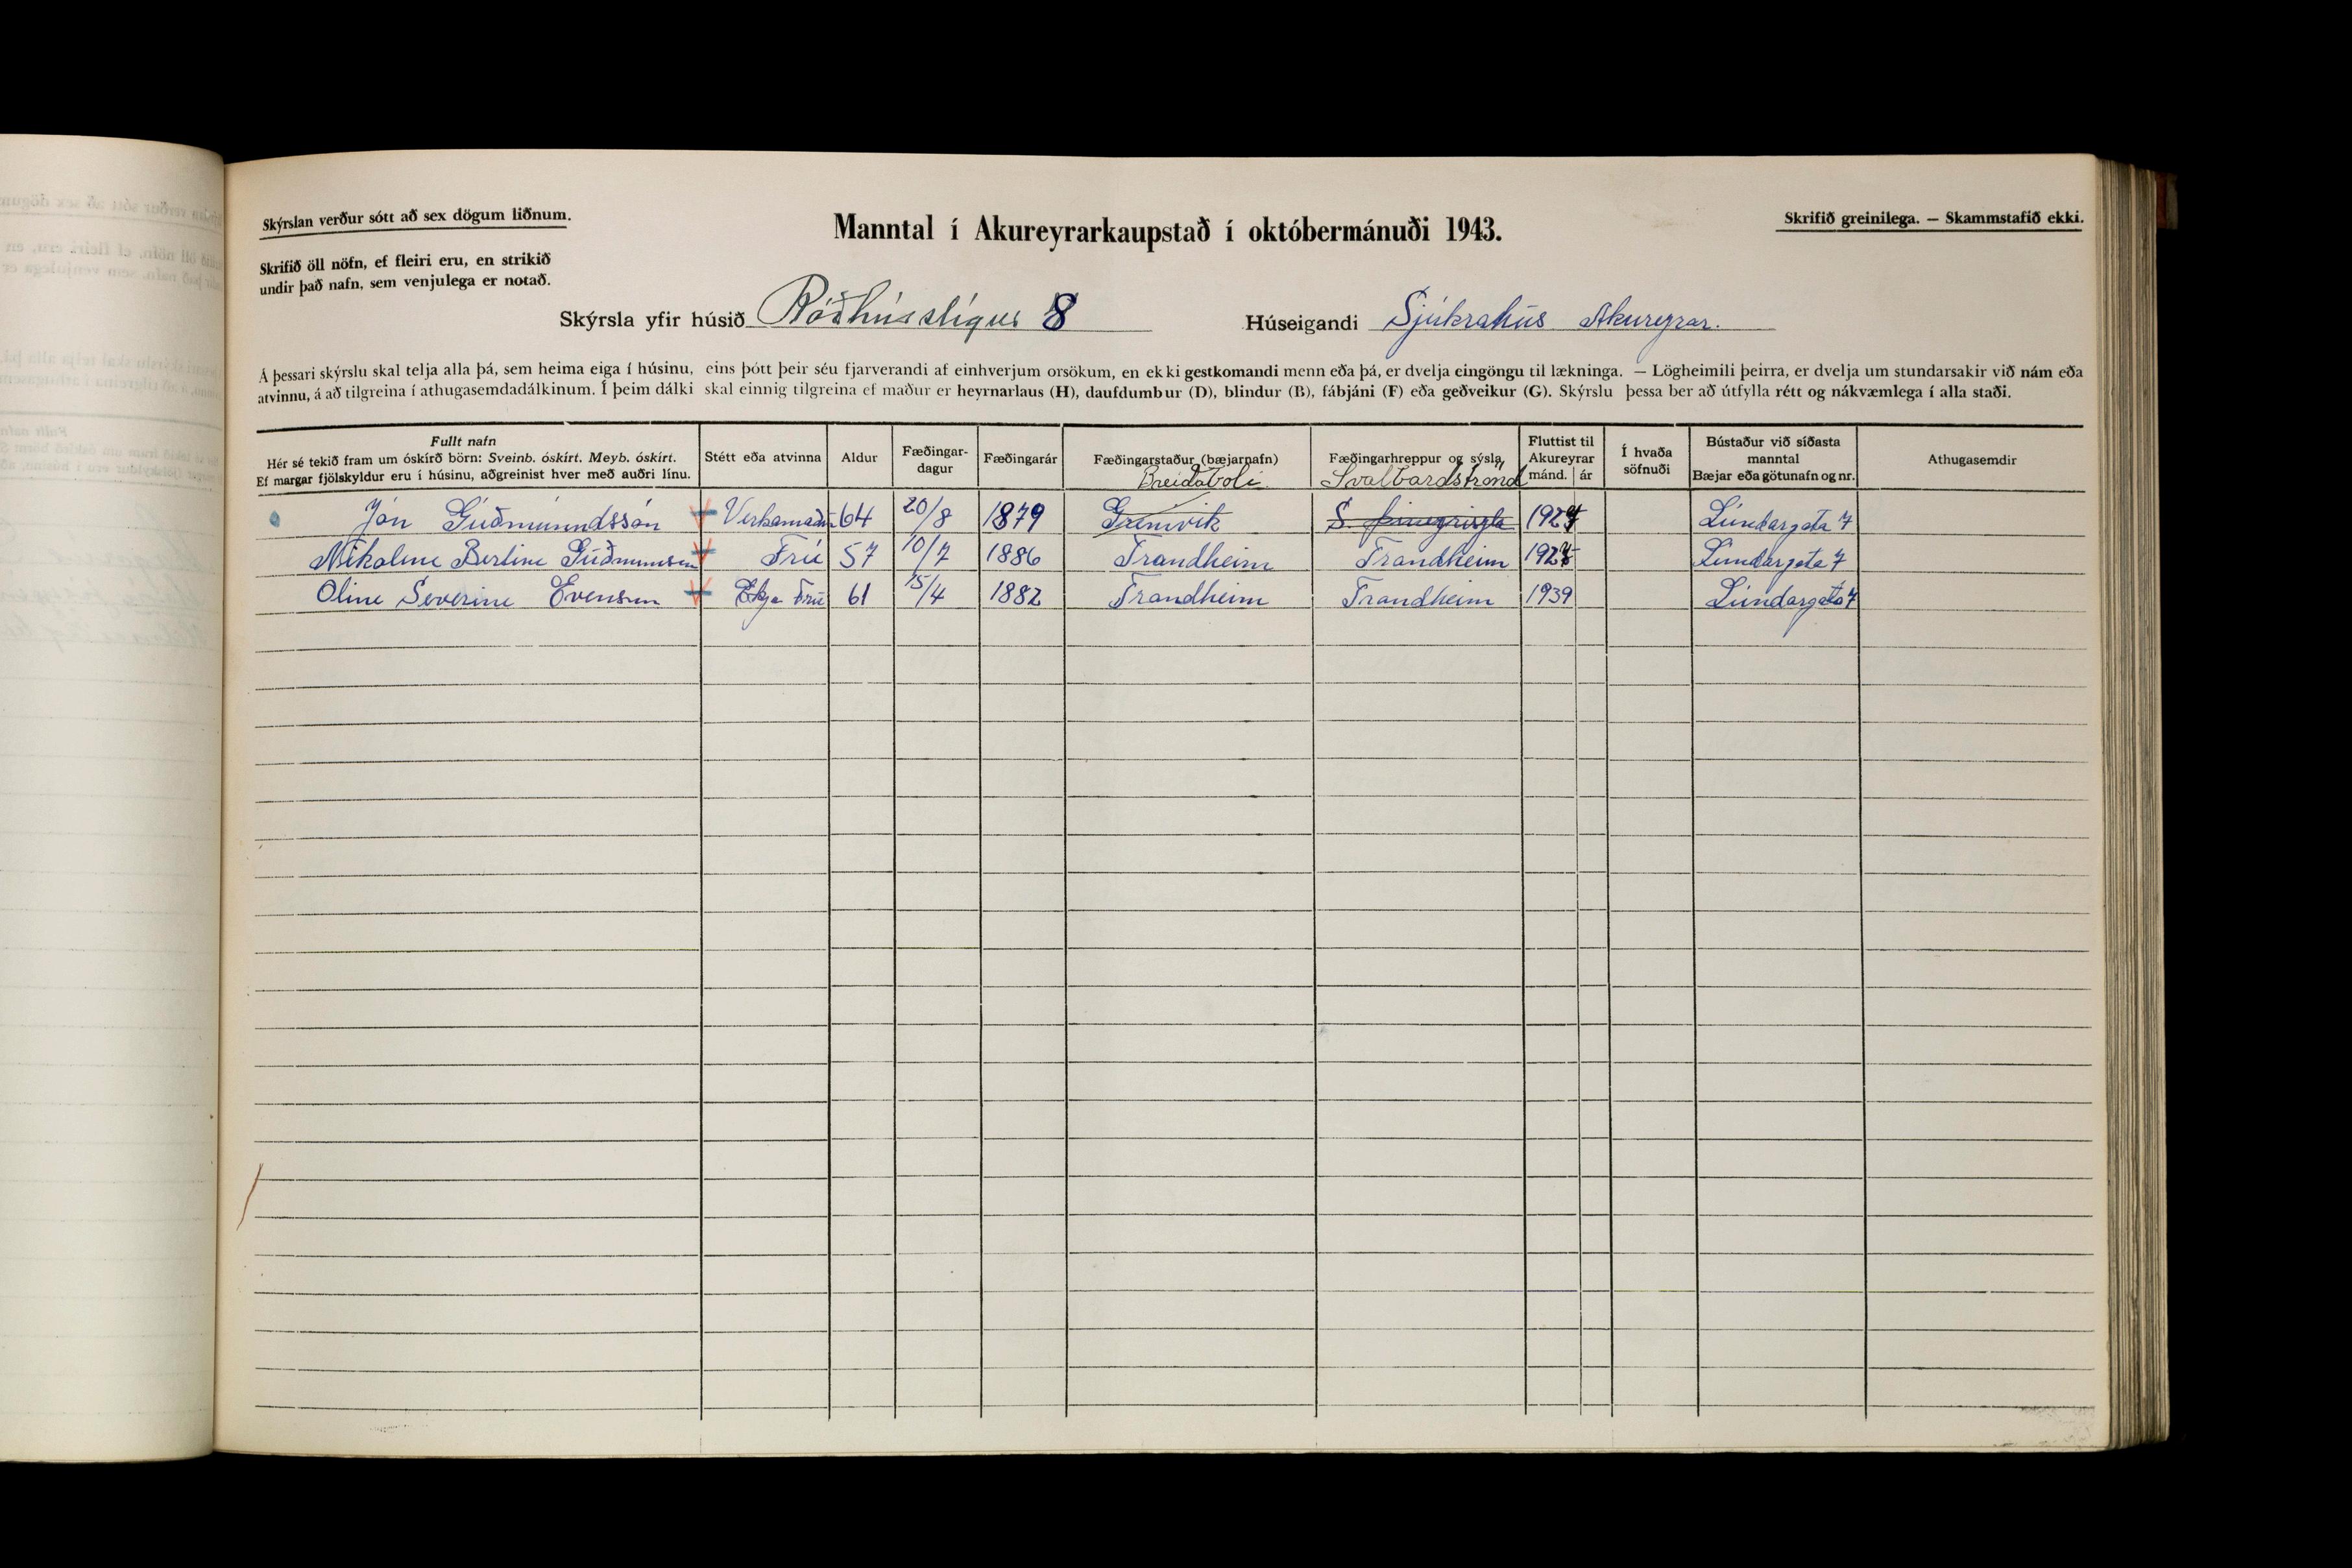 Skýrslan verður sótt að sex dögum liðnum.
Manntal í Akureyrarkaupstað í októbermánuði 1943.
Skrifið greinilega. — Skammstafið ekki.
Skrifið öll nöfn, ef fleiri eru, en strikið
undir það nafn, sem venjulega er notað.
Skýrsla yfir húsið Ráðhússtígur 8 Húseigandi Sjúkrahús Akureyrar.
Á þessari skýrslu skal telja alla þá, sem heima eiga í húsinu, eins þótt þeir séu fjarverandi af einhverjum orsökum, en ekki gestkomandi menn eða þá, er dvelja eingöngu til lækninga. — Lögheimili þeirra, er dvelja um stundarsakir við nám eða
atvinnu, á að tilgreina í athugasemdadálkinum. Í þeim dálki skal einnig tilgreina ef maður er heyrnarlaus (H), daufdumbur (D), blindur (B), fábjáni (F) eða geðveikur (G). Skýrslu þessa ber að útfylla rétt og nákvæmlega í alla staði.
Fullt nafn
Hér sé tekið fram um óskírð börn: Sveinb. óskírt. Meyb. óskírt.
Ef margar fjölskyldur eru í húsinu, aðgreinist hver með auðri línu.
Stétt eða atvinna
Aldur
Fæðingar-
dagur
Fæðingarár
Fæðingarstaður (bæjarnafn)
Fæðingarhreppur og sýsla
Fluttist til
Akureyrar
mánd. ár
Í hvaða
söfnuði
Bústaður við síðasta
manntal
Bæjar eða götunafn og nr.
Athugasemdir
Breiðaból Svalbardströnd
Jón Gúðmúnndssón Verkamaður 64 20/8 1879 Grímvík S. þingeyisýsla 1924 Lúndargata 7
Nikoline Berline Gúðmunsen Frú 57 10/7 1886 Trandheim Trandheim 1924 Lúndargata 7
Oline Severine Evensen Ekja Frú 61 15/4 1882 Trandheim Trandheim 1939 Lúndargata 7